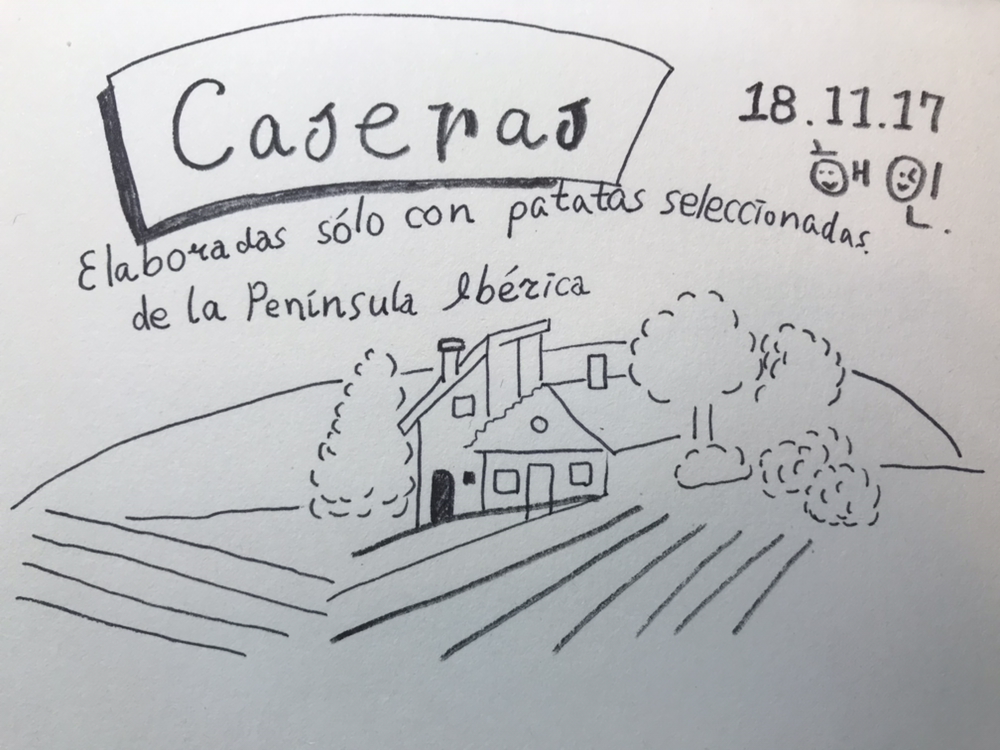 Caseras
18.11.17
해인.
Elaboradas sólo con patatas seleccionadas.
de la Península Ibérica